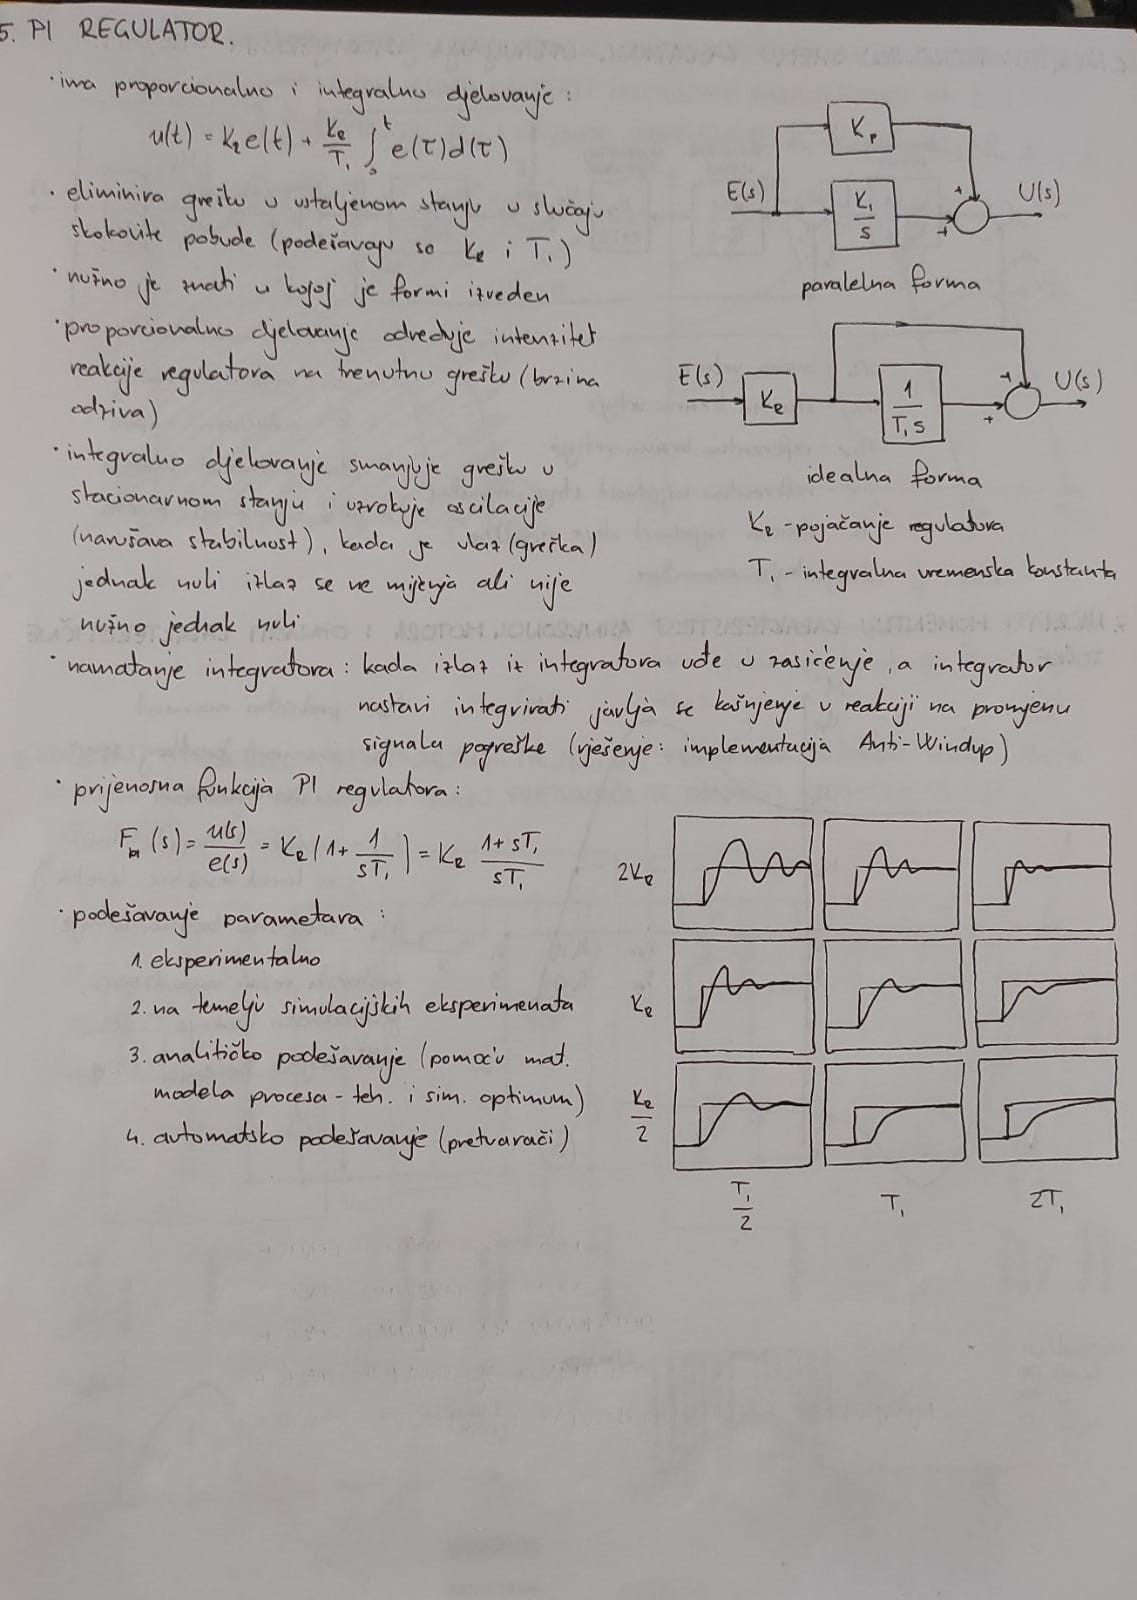 5. PI REGULATOR.
· ima proporcionalno i integralno djelovanje :
u(t) = K_R e(t) + K_R/T_I ∫_0^t e(τ)d(τ)
· eliminira grešku u ustaljenom stanju u slučaju
skokovite pobude (podešavaju se K_R i T_I)
· nužno je znati u kojoj je formi izveden
· proporcionalno djelovanje određuje intenzitet
reakcije regulatora na trenutnu grešku (brzina
odziva)
· integralno djelovanje smanjuje grešku u
stacionarnom stanju i uzrokuje oscilacije
(narušava stabilnost), kada je ulaz (greška)
jednak nuli izlaz se ne mijenja ali nije
nužno jednak nuli
E(s)
K_P
K_I/s
+
+
U(s)
paralelna forma
E(s)
K_R
1/(T_I s)
+
+
U(s)
idealna forma
K_R - pojačanje regulatora
T_I - integralna vremenska konstanta
· namatanje integratora : kada izlaz iz integratora uđe u zasićenje, a integrator
nastavi integrirati javlja se kašnjenje u reakciji na promjenu
signala pogreške (rješenje: implementacija Anti-Windup)
· prijenosna funkcija PI regulatora :
F_PI (s) = u(s)/e(s) = K_R (1 + 1/(sT_I)) = K_R (1+sT_I)/(sT_I)
· podešavanje parametara :
1. eksperimentalno
2. na temelju simulacijskih eksperimenata
3. analitičko podešavanje (pomoću mat.
modela procesa - teh. i sim. optimum)
4. automatsko podešavanje (pretvarači)
2K_R
K_R
K_R/2
T_I/2
T_I
2T_I